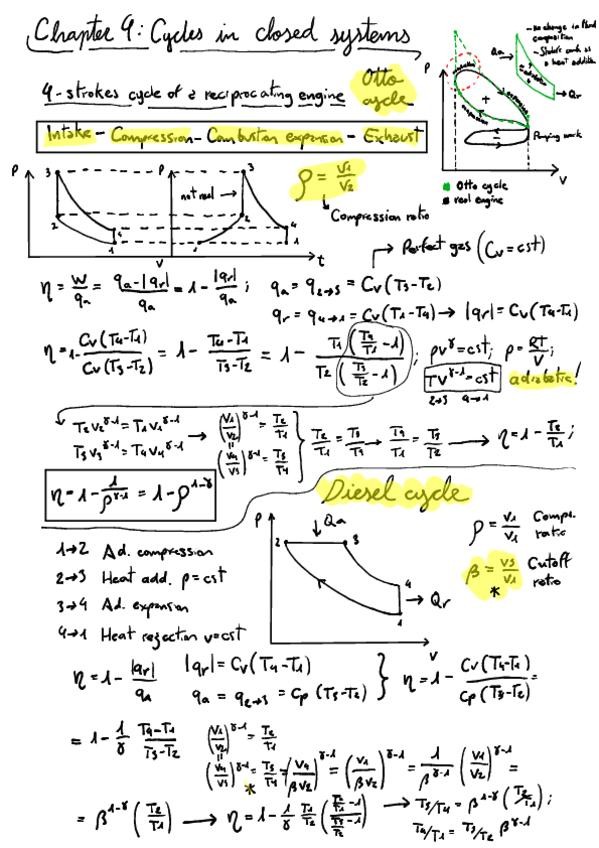 Chapter 9: Cycles in closed systems
- No change in fluid composition
- Qa
- Qr
4-strokes cycle of a reciprocating engine Otto cycle
Intake - Compression - Combustion expansion - Exhaust
P
expansion
compression
+
-
Pumping work
V
Otto cycle
real engine
P 3 P 3
not real →
2 2 4 4 1 1
V t
ρ = V1/V2
↓ Compression ratio
→ Perfect gas (Cv = cst)
η = W/qa = (qa-|qr|)/qa = 1 - |qr|/qa ; qa = q2→3 = Cv(T3-T2)
qr = q4→1 = Cv(T1-T4) → |qr| = Cv(T4-T1)
η = 1- Cv(T4-T1)/Cv(T3-T2) = 1 - (T4-T1)/(T3-T2) = 1 - T1(T4/T1 -1)/T2(T3/T2 -1) ; pv^γ = cst; p = RT/V;
TV^γ-1 = cst adiabatic!
T2V2^γ-1 = T1V1^γ-1 → (V1/V2)^γ-1 = T2/T1
T3V3^γ-1 = T4V4^γ-1 (V4/V3)^γ-1 = T3/T4
→ η = 1 - T2/T1 ;
η = 1 - 1/ρ^γ-1 = 1 - ρ^1-γ
Diesel cycle
P ↓Qa
2 3 4 1
→ Qr
V
ρ = V1/V1 Compr. ratio
β = V3/V1 Cutoff ratio
*
1→2 Ad. compression
2→3 Heat add. P=cst
3→4 Ad. expansion
4→1 Heat rejection v=cst
η = 1 - |qr|/qa |qr| = Cv(T4-T1)
qa = q2→3 = Cp(T3-T2) } η = 1 - Cv(T4-T1)/Cp(T3-T2) =
= 1 - 1/γ (T4-T1)/(T3-T2) (V1/V2)^γ-1 = T2/T1
(V4/V3)^γ-1 = T3/T4 = (V4/βV2)^γ-1 = (V1/βV2)^γ-1 = 1/β^γ-1 (V1/V2)^γ-1 =
*
= β^1-γ (T2/T1) → η = 1 - 1/γ
→ T3/T4 = β^1-γ (T2/T1);
T4/T1 = T3/T2 β^γ-1